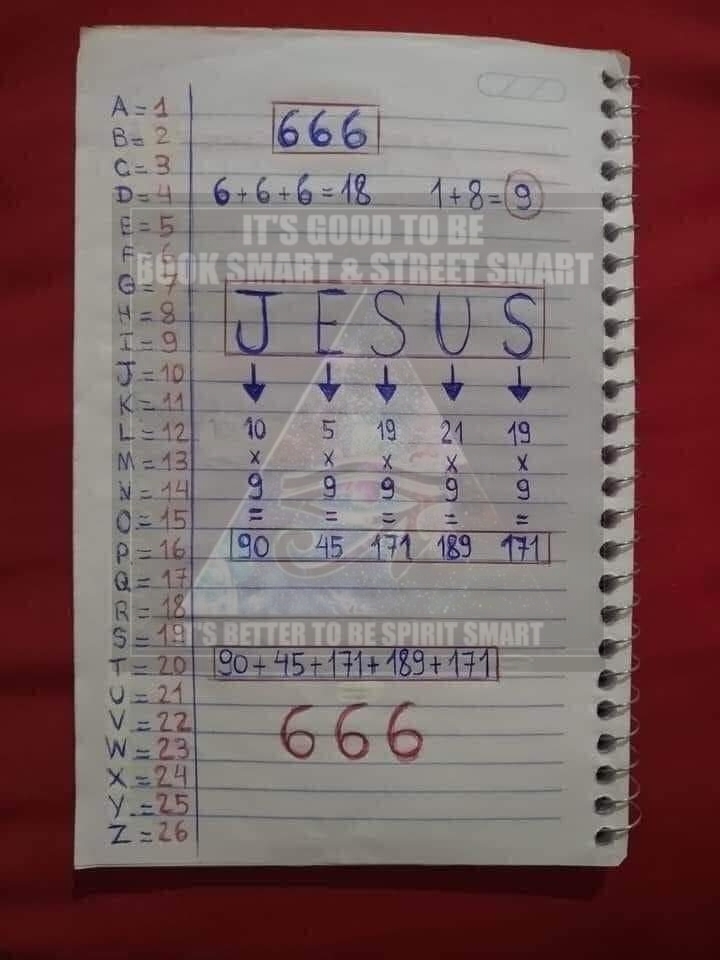 A = 1
B = 2
C = 3
D = 4
E = 5
F = 6
G = 7
H = 8
I = 9
J = 10
K = 11
L = 12
M = 13
N = 14
O = 15
P = 16
Q = 17
R = 18
S = 19
T = 20
U = 21
V = 22
W = 23
X = 24
Y = 25
Z = 26
666
6+6+6=18 1+8=9
IT'S GOOD TO BE
BOOK SMART & STREET SMART
JESUS
10 5 19 21 19
x x x x x
9 9 9 9 9
= = = = =
90 45 171 189 171
IT'S BETTER TO BE SPIRIT SMART
90+45+171+189+171
666